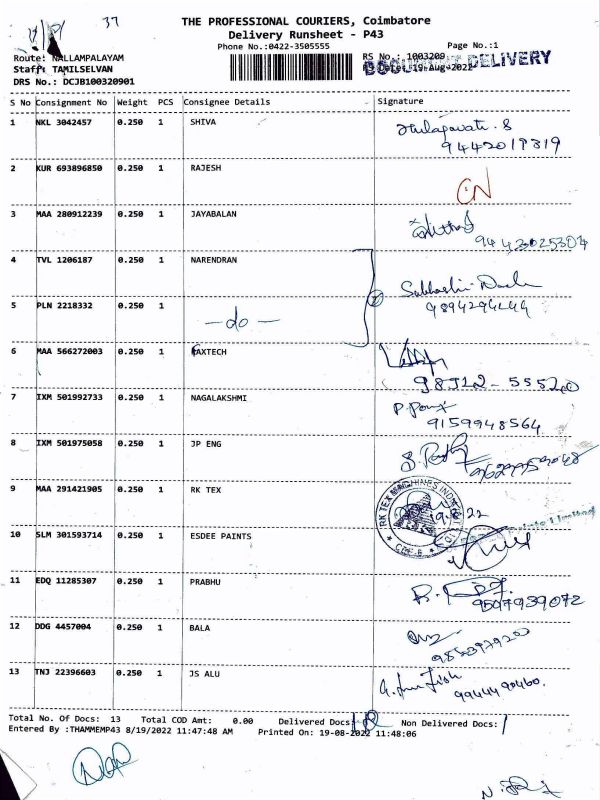 37
THE PROFESSIONAL COURIERS, Coimbatore
Delivery Runsheet - P43
Phone No.:0422-3505555
Page No.:1
Route: NALLAMPALAYAM
RS No.: 1003209
Staff: TAMILSELVAN
RS Date: 19-Aug-2022
DOCUMENT DELIVERY
DRS No.: DCJB100320901
S No Consignment No Weight PCS Consignee Details Signature
1 NKL 3042457 0.250 1 SHIVA
9442019319
2 KUR 693896850 0.250 1 RAJESH
CN
3 MAA 280912239 0.250 1 JAYABALAN
9443025304
4 TVL 1206187 0.250 1 NARENDRAN
5 PLN 2218332 0.250 1
-do-
6 MAA 566272003 0.250 1 FAXTECH
7 IXM 501992733 0.250 1 NAGALAKSHMI
9159948564
8 IXM 501975058 0.250 1 JP ENG
9 MAA 291421905 0.250 1 RK TEX
RK TEX MACHINES
19.8.22
10 SLM 301593714 0.250 1 ESDEE PAINTS
Limited
11 EDQ 11285307 0.250 1 PRABHU
9597939072
12 DDG 4457004 0.250 1 BALA
13 TNJ 22396603 0.250 1 JS ALU
9944490460.
Total No. Of Docs: 13 Total COD Amt: 0.00 Delivered Docs: 12 Non Delivered Docs: 1
Entered By :THAMMEMP43 8/19/2022 11:47:48 AM Printed On: 19-08-2022 11:48:06